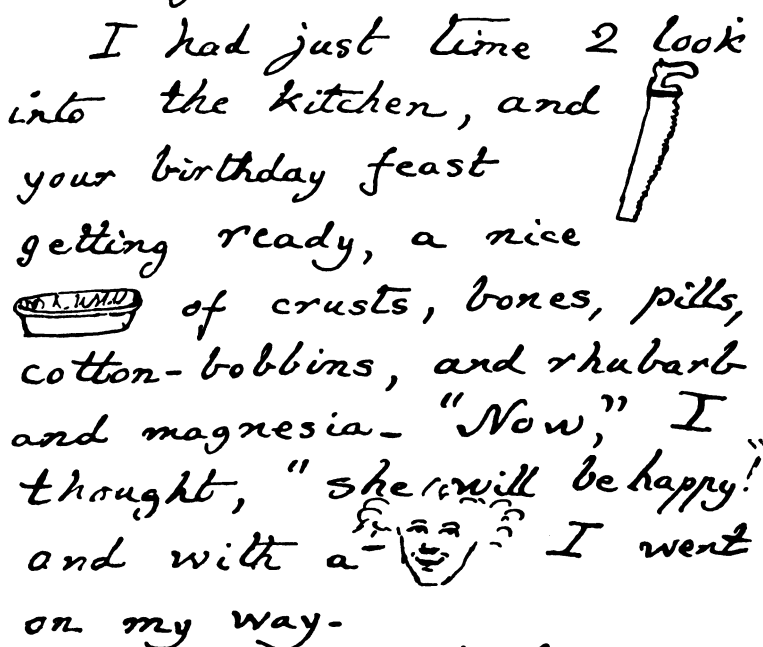 I had just time 2 look
into the kitchen, and
your birthday feast
getting ready, a nice
of crusts, bones, pills,
cotton-bobbins, and rhubarb
and magnesia— "Now," I
thought, "she will be happy!"
and with a I went
on my way—